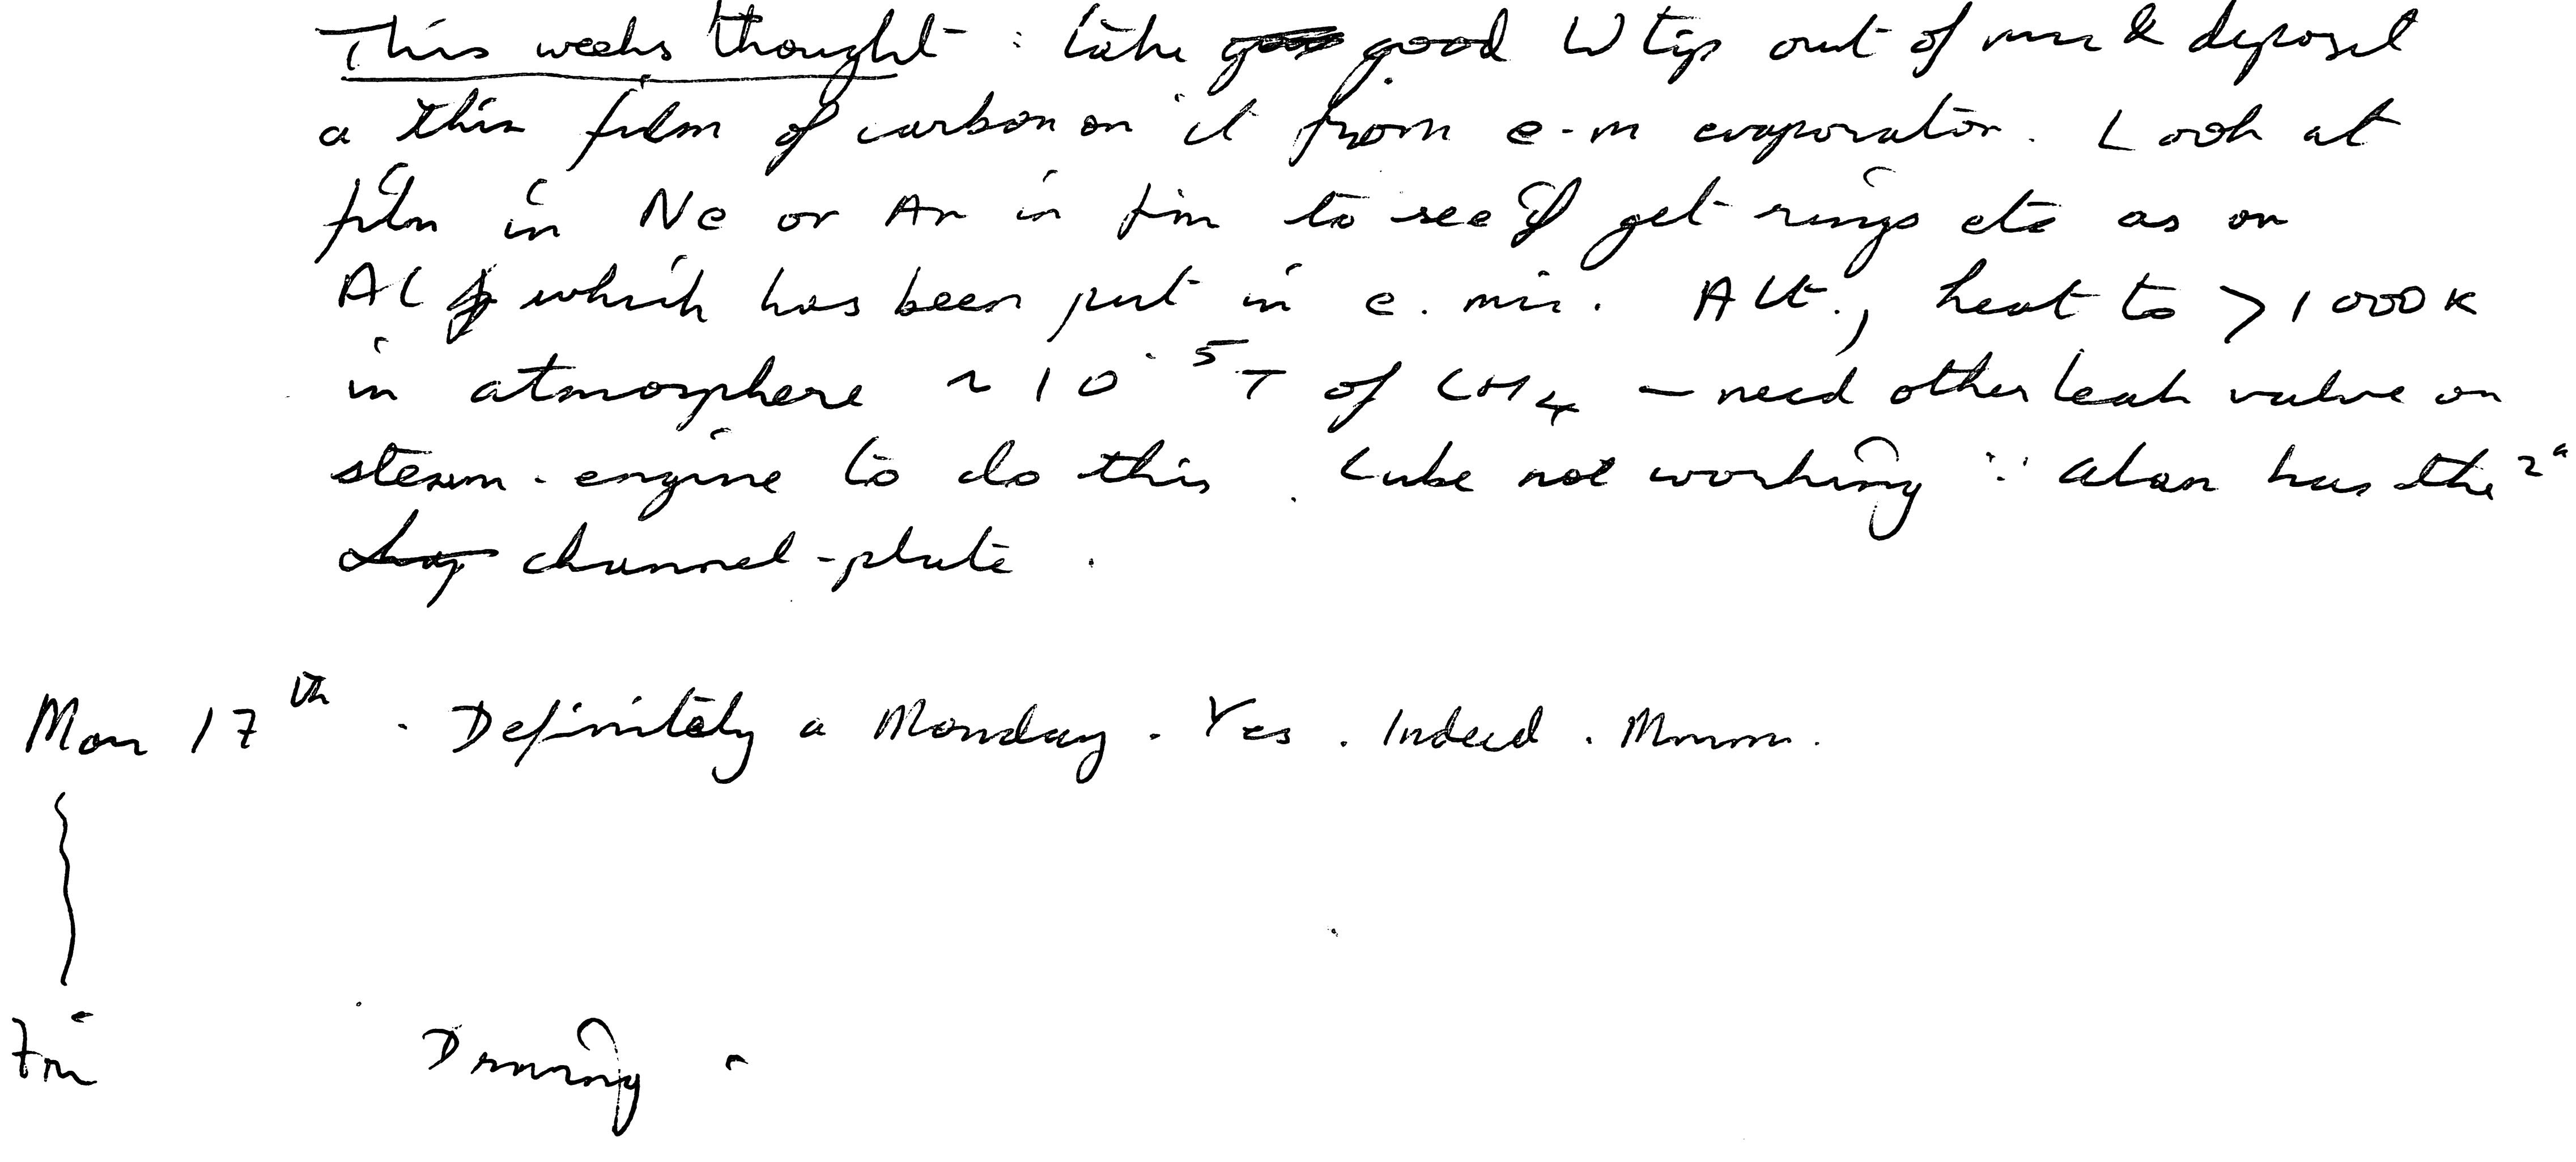 This weeks thought : take good W tip out of & deposit
a thin film of carbon on it from e-m evaporator. Look at
film in Ne or Ar in fim to see if get rings etc as on
Al which has been put in e. mic. Alt., heat to >1000K
in atmosphere ~10⁻⁵T of CH₄ — need other leak valve on
steam-engine to do this. Lube not working ∵ Alan has the 2"
channel-plate.
Mon 17th . Definitely a Monday. Yes. Indeed. Mmmm.
Fri